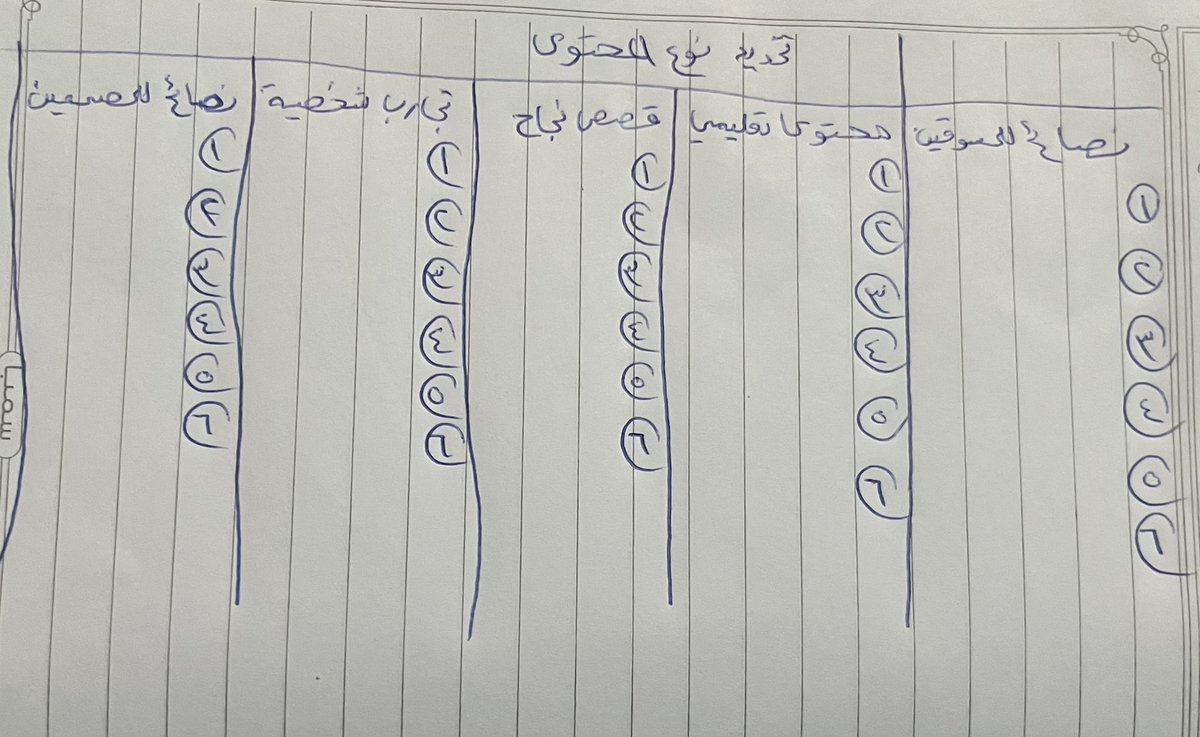 تحديد نوع المحتوى
نصائح للمسوقين
١
٢
٣
٤
٥
٦
محتوى تعليمي
١
٢
٣
٤
٥
٦
قصص نجاح
١
٢
٣
٤
٥
٦
تجارب شخصية
١
٢
٣
٤
٥
٦
نصائح للمصممين
١
٢
٣
٤
٥
٦